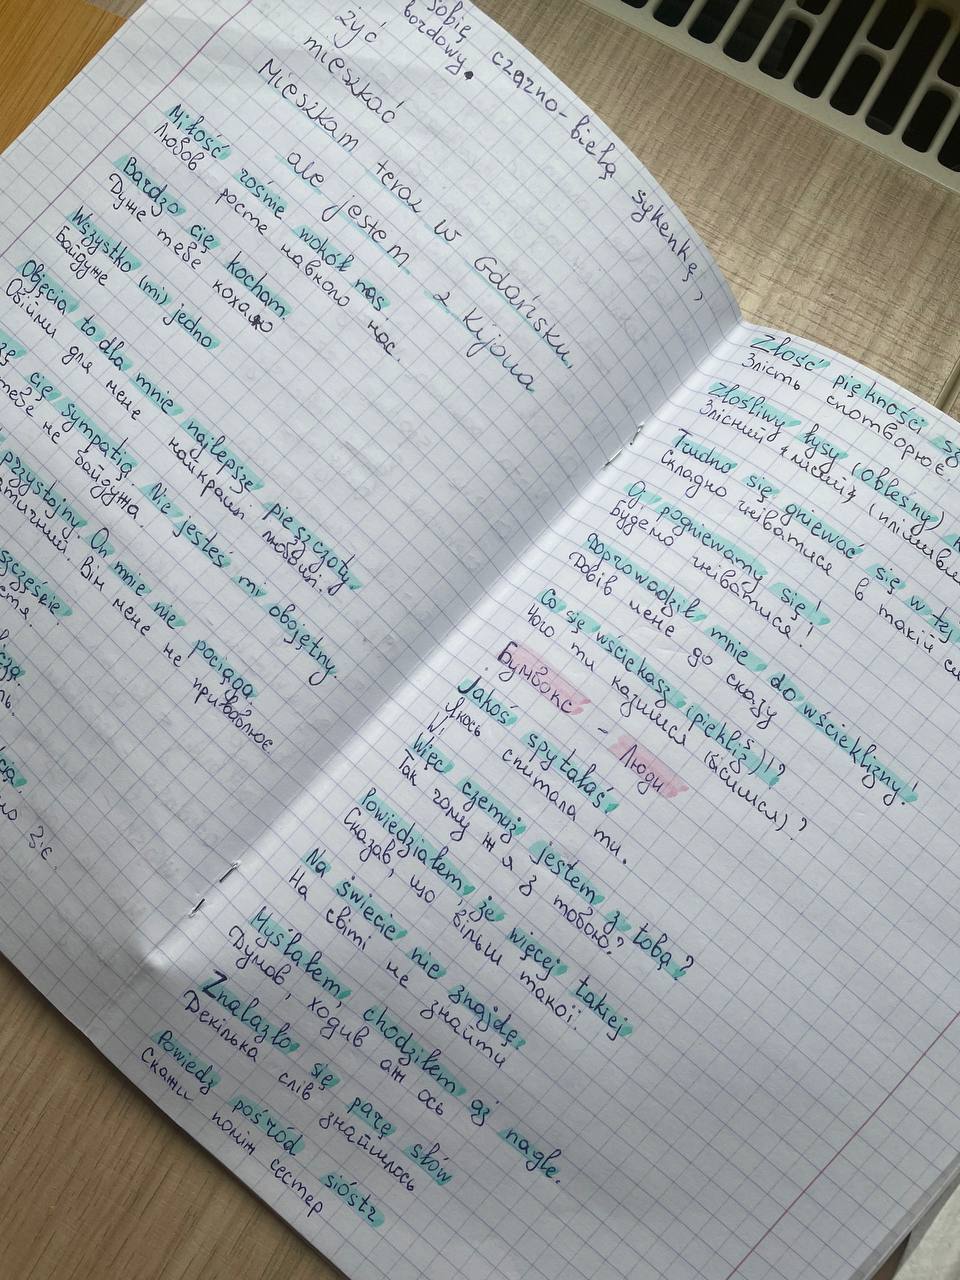 sobię czarno-białą sukenkę,
bordowy.
żyć
mieszkać
Mieszkam teraz w Gdańsku,
ale jestem z Kijowa
Miłość rośnie wokół nas
Любов росте навколо нас.
Bardzo cię kocham.
Дуже тебе кохаю
Wszystko (mi) jedno
Байдуже
Objęcia to dla mnie najlepsze pieszczoty
Обійми для мене найкращі любощі.
cię sympatią. Nie jesteś mi obojętny.
тебе не байдужа.
przystojny. On mnie nie pociąga.
Він мене не приваблює.
szczęście
Złość piękności
Злість спотворює.
Złośliwy łysy (obleśny)
Злісний лисий (плішивий
Trudno się gniewać się w tej
Складно гніватися в такій
Oj pogniewamy się!
Будемо гніватися!
Doprowadził mnie do wścieklizny!
Довів мене до сказу
Co się wściekasz (pieklisz)!?
Чого ти казишся (бісишся)?
Бумбокс – Люди
Jakoś spytałaś
Якось спитала ти.
W!
Więc czemuż jestem z tobą?
Так чому ж я з тобою?
Powiedziałem, że więcej takiej
Сказав, що більш такої.
Na świecie nie znajdę.
На світі не знайти
Myślałem, chodziłem aż nagle.
Думав, ходив аж ось
Znalazło się parę słów
Декілька слів знайшлось
Powiedz pośród sióstr
Скажи поміж сестер